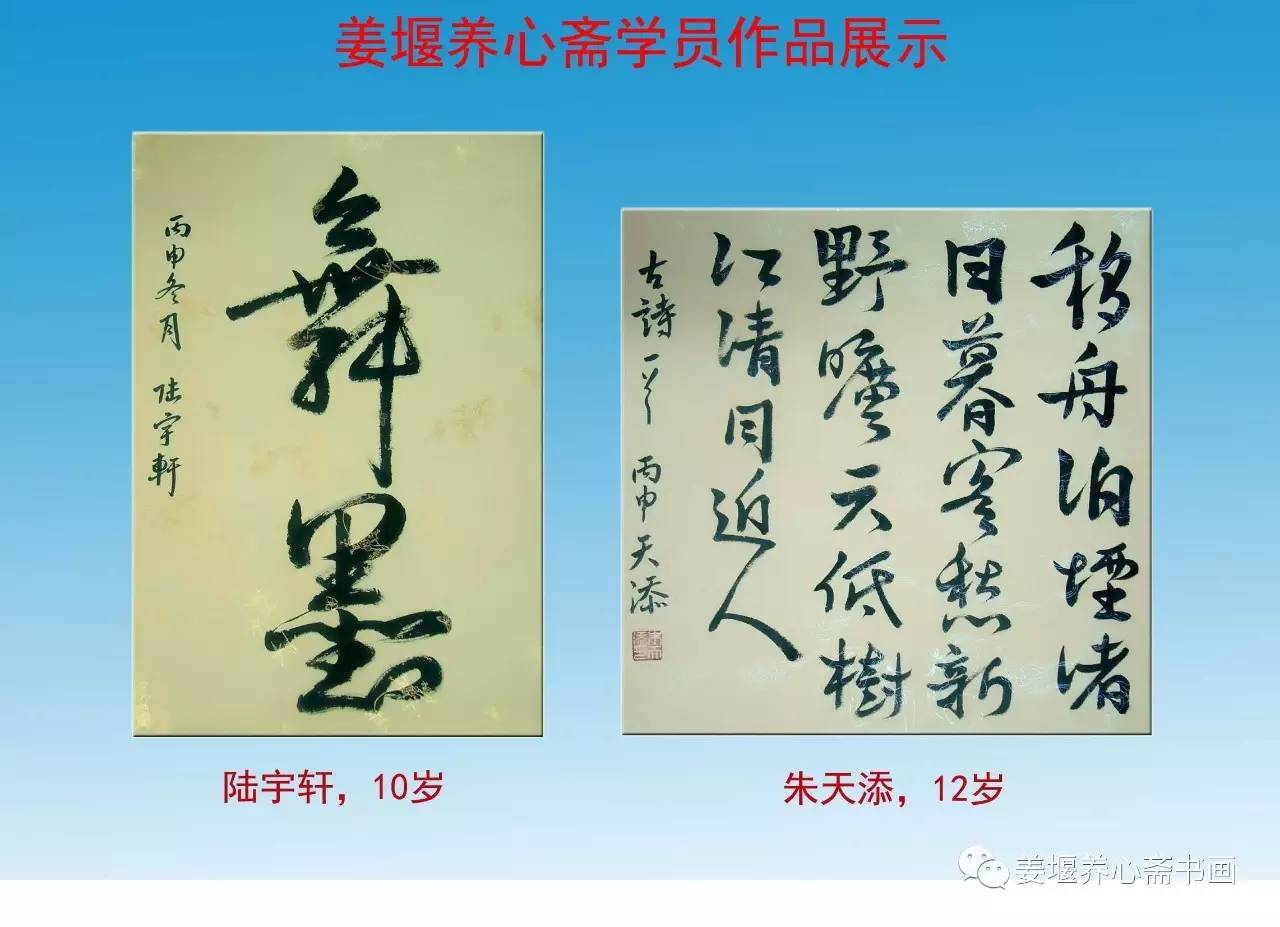 姜堰养心斋学员作品展示
舞墨
丙申冬月 陸宇軒
移舟泊煙渚
日暮客愁新
野曠天低樹
江清月近人
古詩一首 丙申 天添
陆宇轩，10岁
朱天添，12岁
姜堰养心斋书画